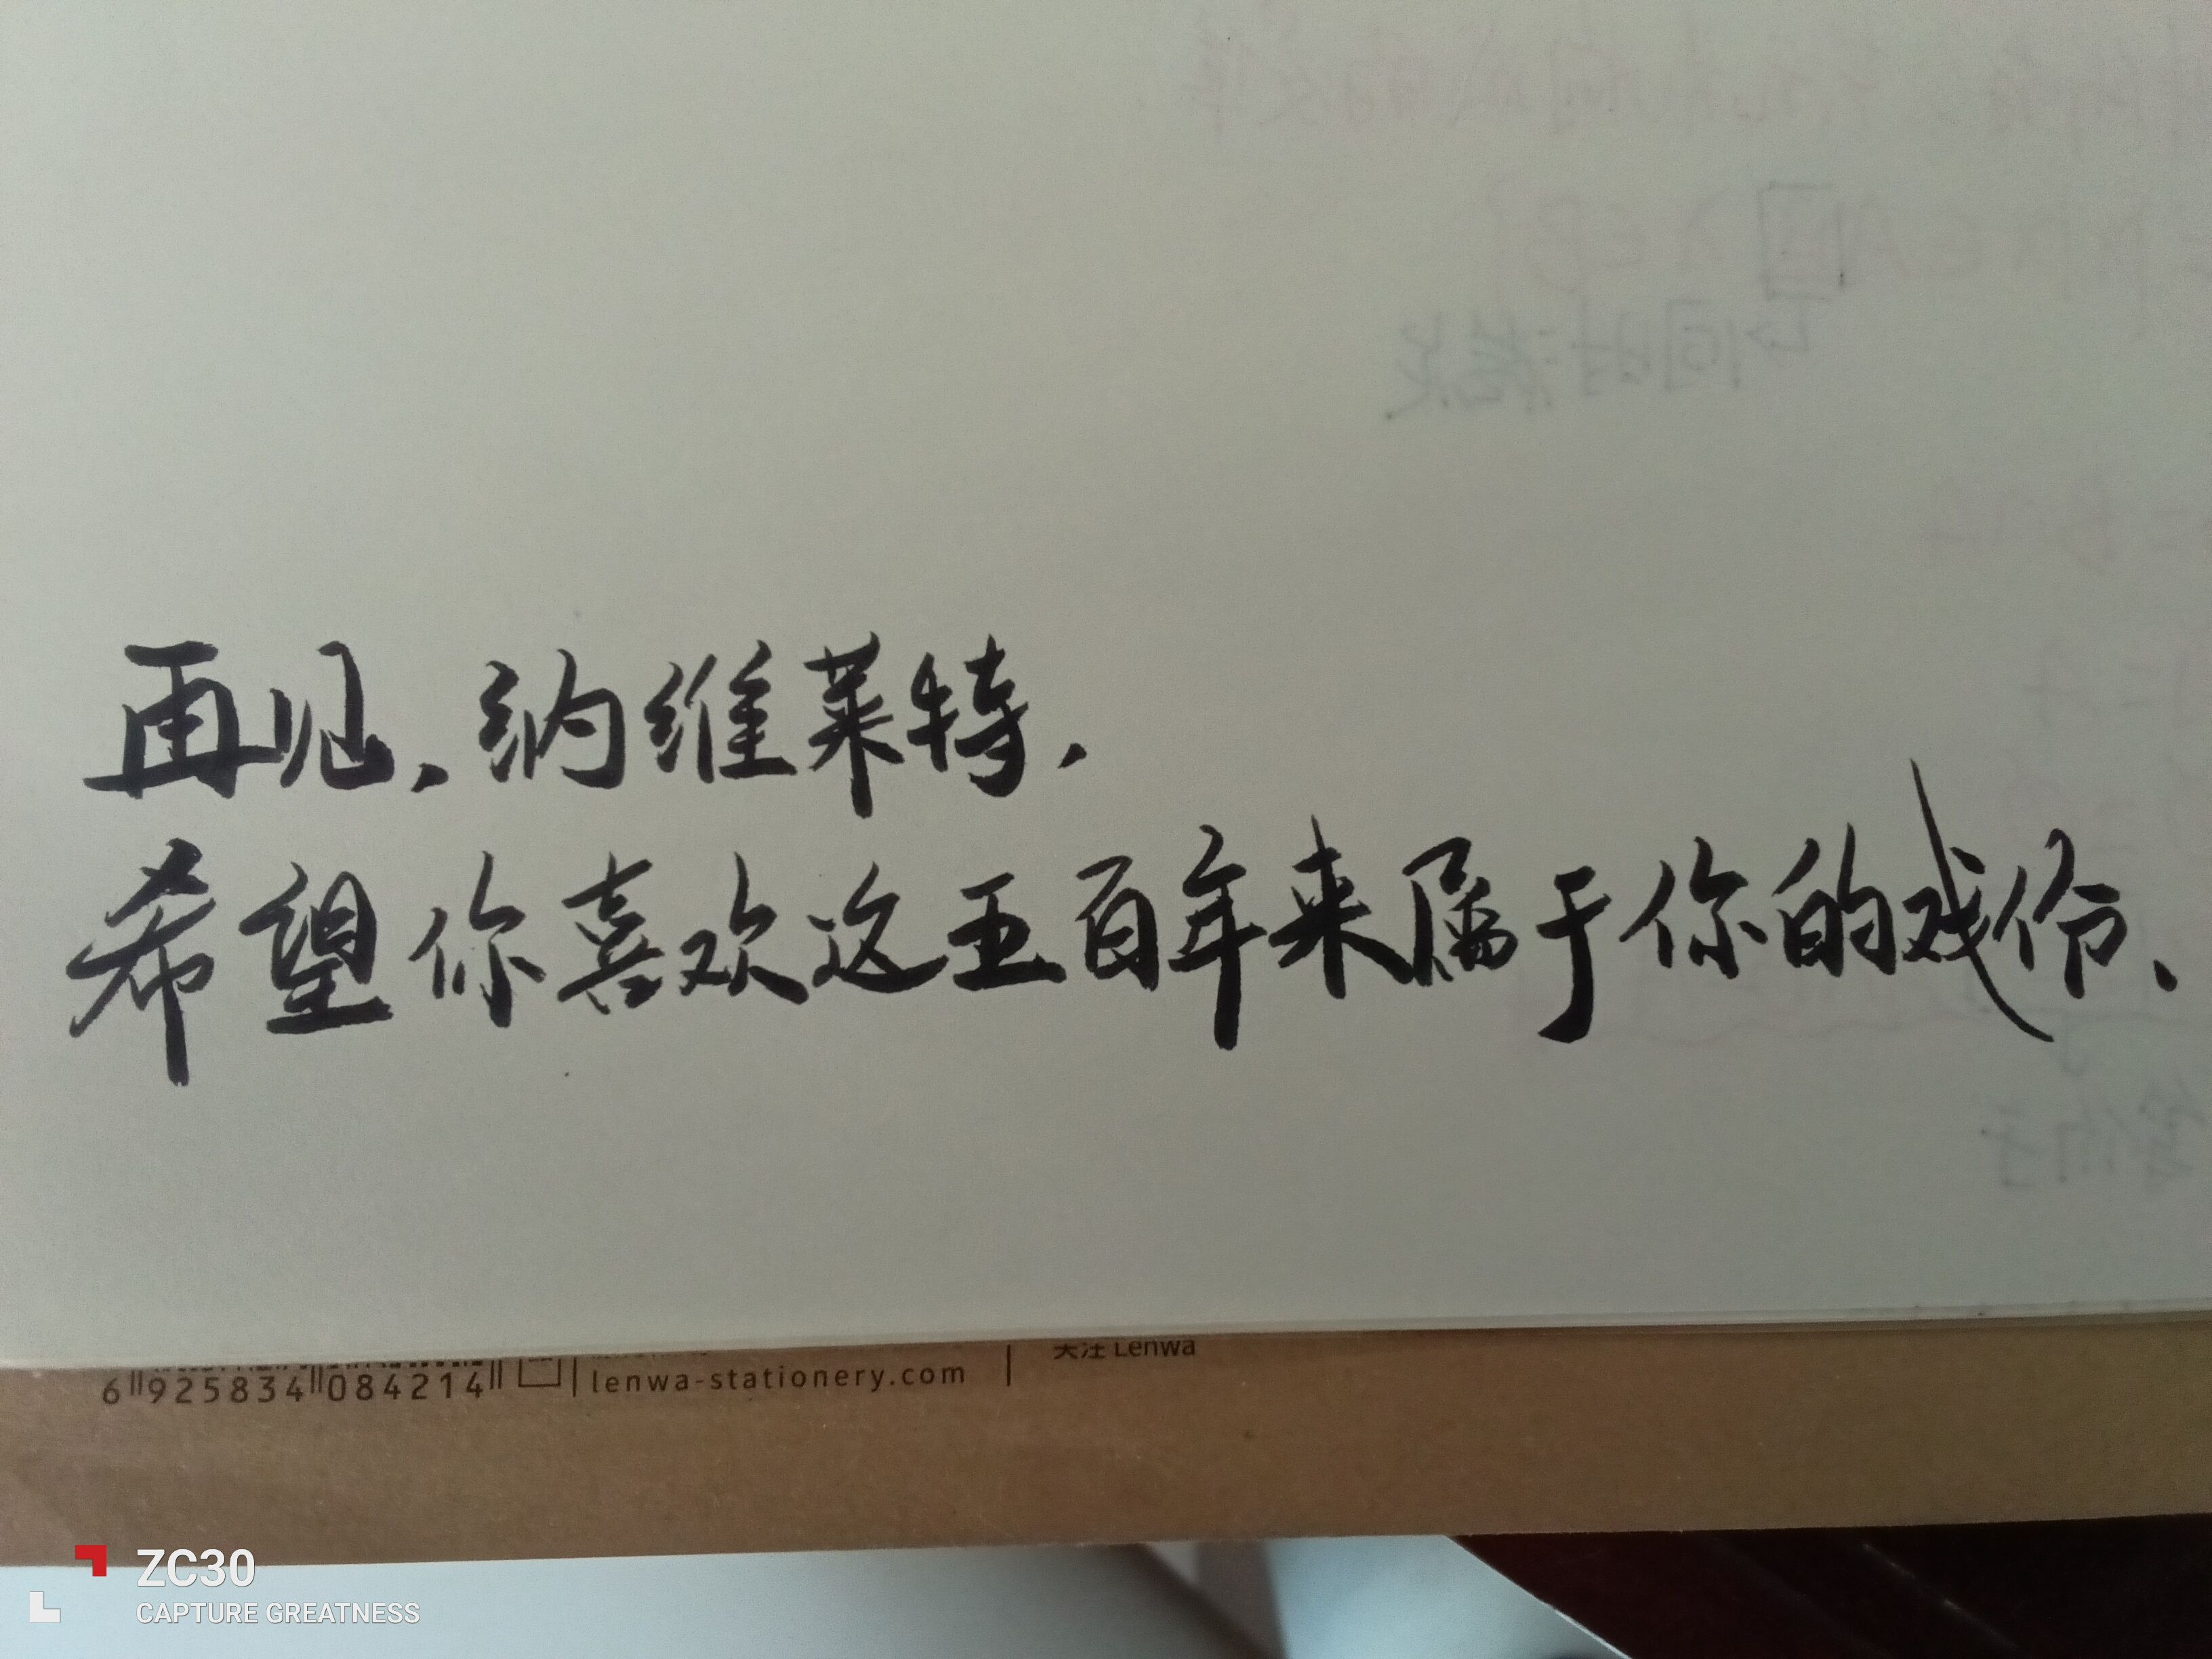 再见，纳维莱特，
希望你喜欢这五百年来属于你的戏份、
6 925834 084214
lenwa-stationery.com
关注 Lenwa
ZC30
CAPTURE GREATNESS